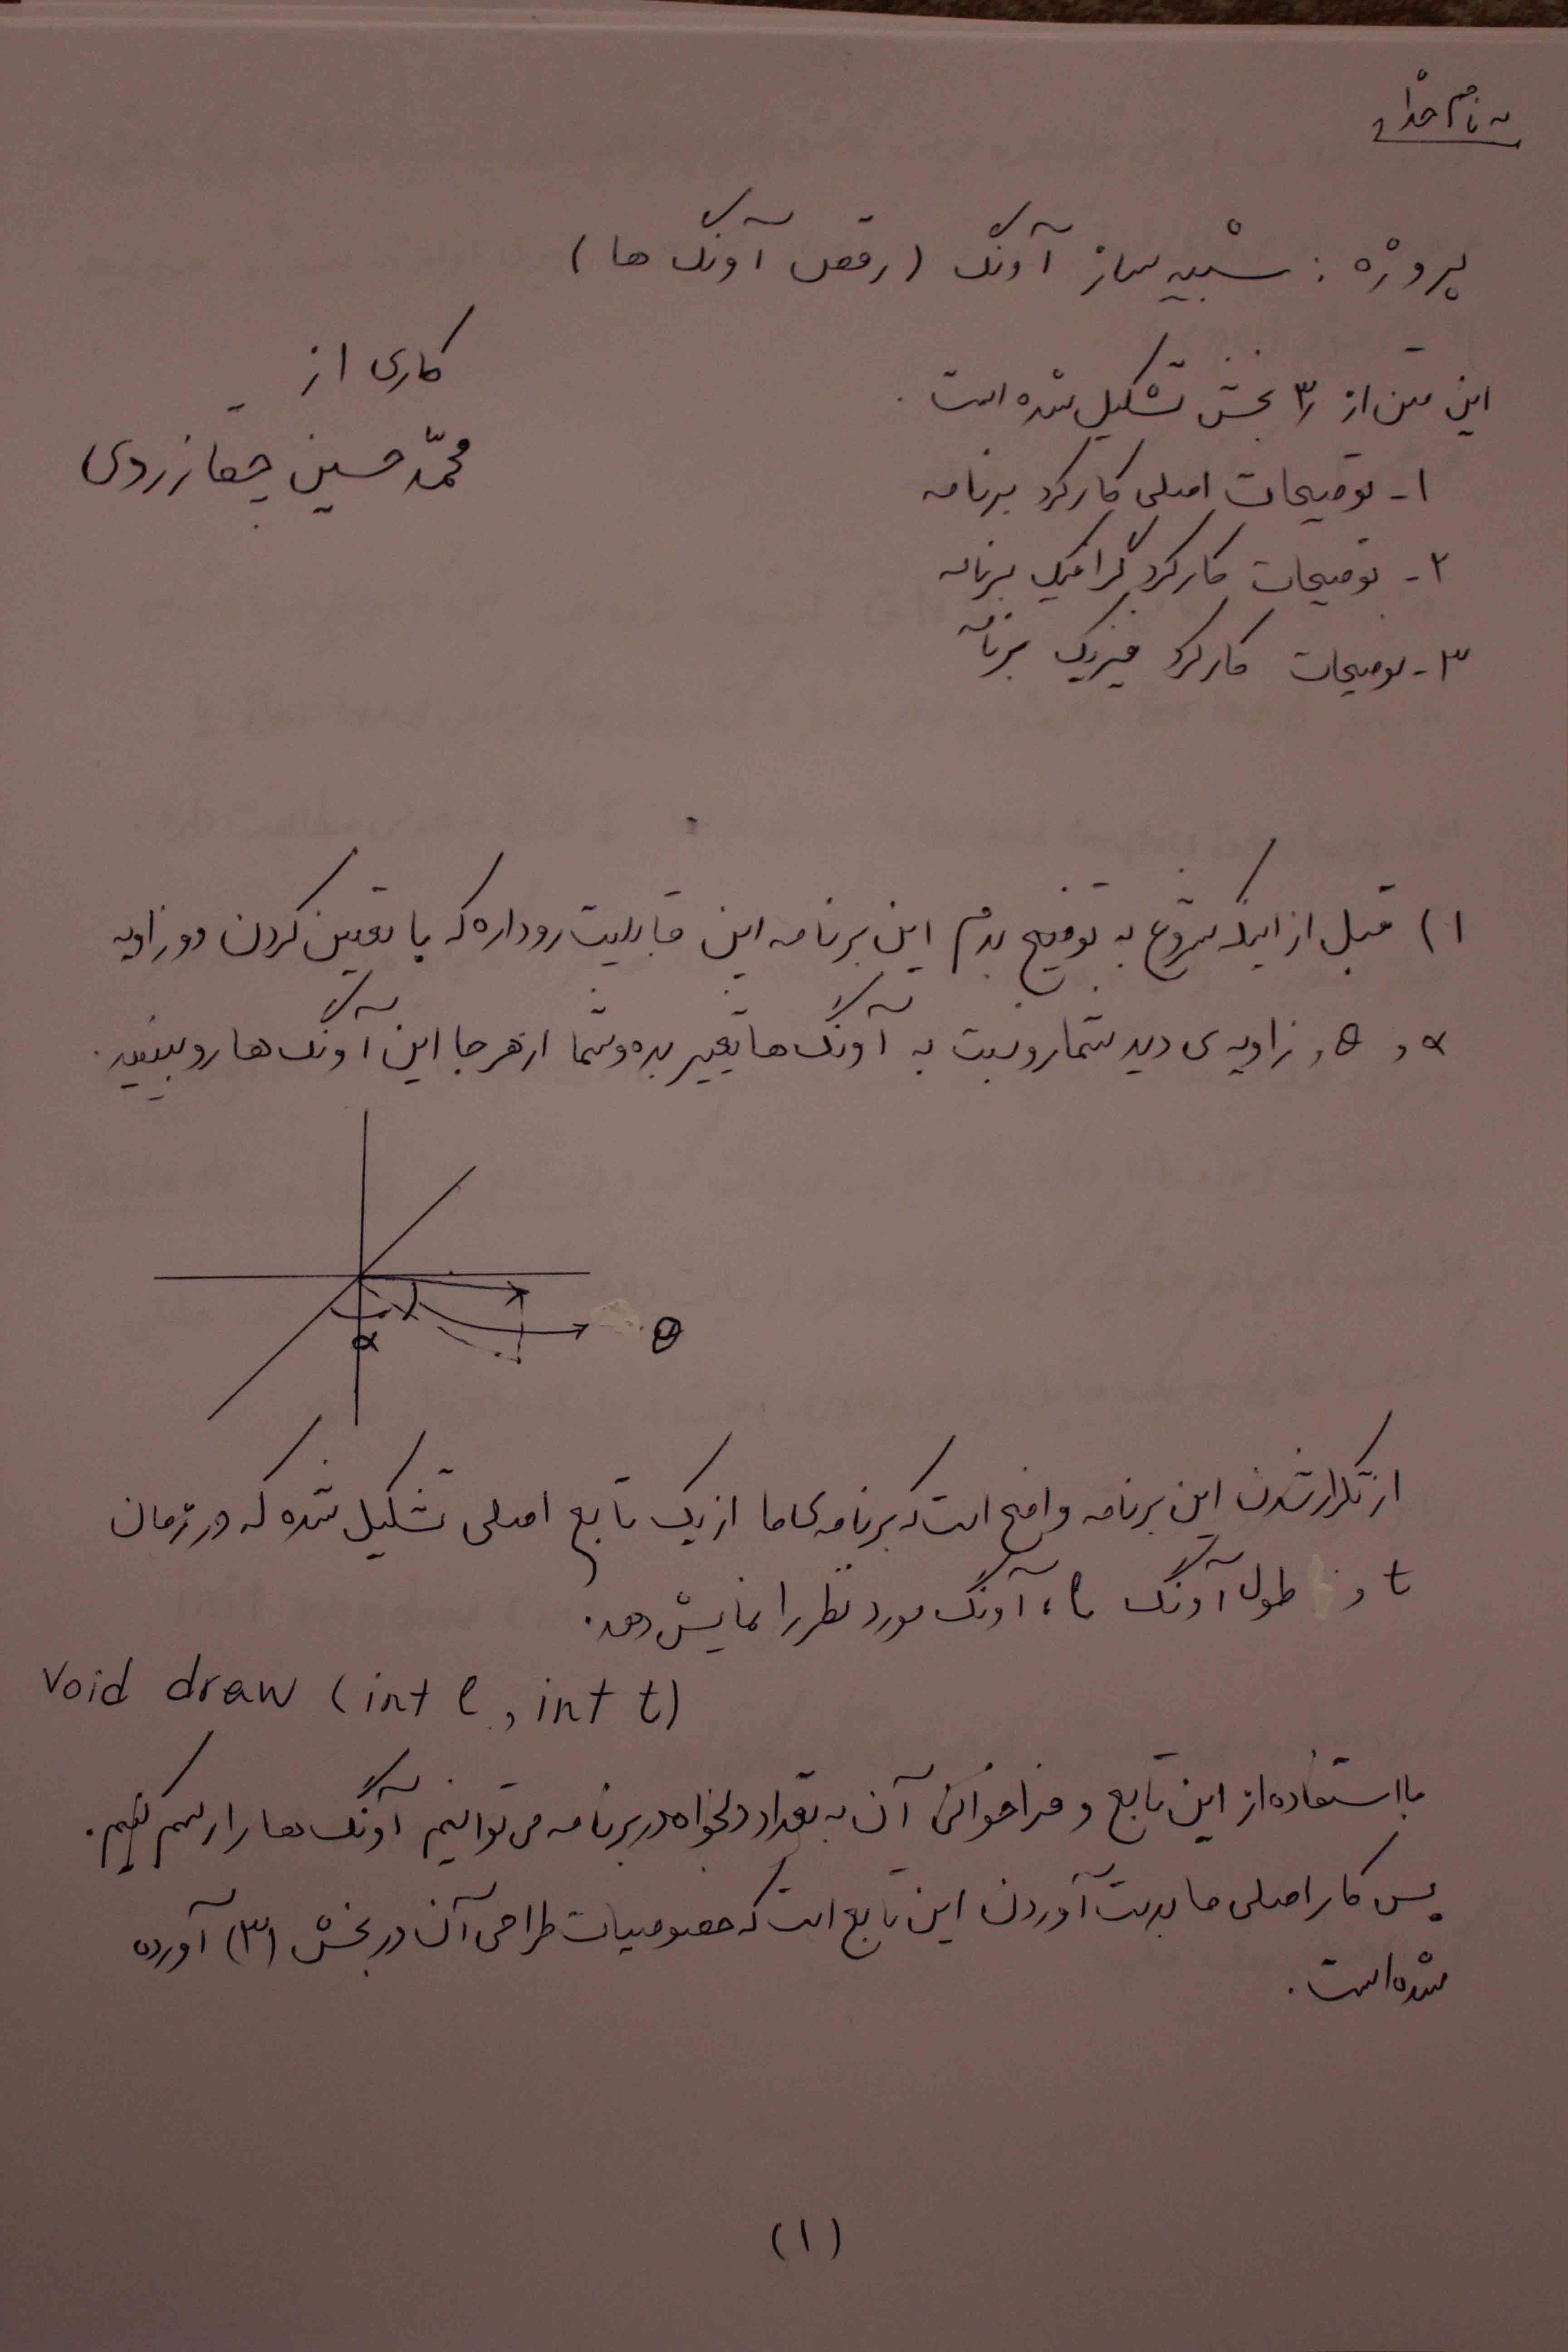 به نام خدا
پروژه : شبیه ساز آونگ (رقص آونگ ها)
این متن از ۳ بخش تشکیل شده است .
کاری از
محمّد حسین
۱- توضیحات اصلی کارکرد برنامه
۲- توضیحات کارکرد گرافیک برنامه
۳- توضیحات کارکرد فیزیک برنامه
۱) قبل از اینکه شروع به توضیح بدم این برنامه این قابلیت رو داره که با تعیین کردن دو زاویه
α و θ , زاویه ی دید شما رو نسبت به آونگ ها تغییر بده و شما از هر جا این آونگ ها رو ببینید .
α
θ
از تکرار شدن این برنامه واضح است که برنامه ی ما از یک تابع اصلی تشکیل شده که در زمان
t و طول آونگ l ، آونگ مورد نظر را نمایش دهد .
Void draw (int l , int t)
با استفاده از این تابع و فراخوانی آن به تعداد دلخواه در برنامه می توانیم آونگ ها را رسم کنیم .
پس کار اصلی ما بدست آوردن این تابع است که خصوصیات طراحی آن در بخش (۳) آورده
شده است .
(۱)